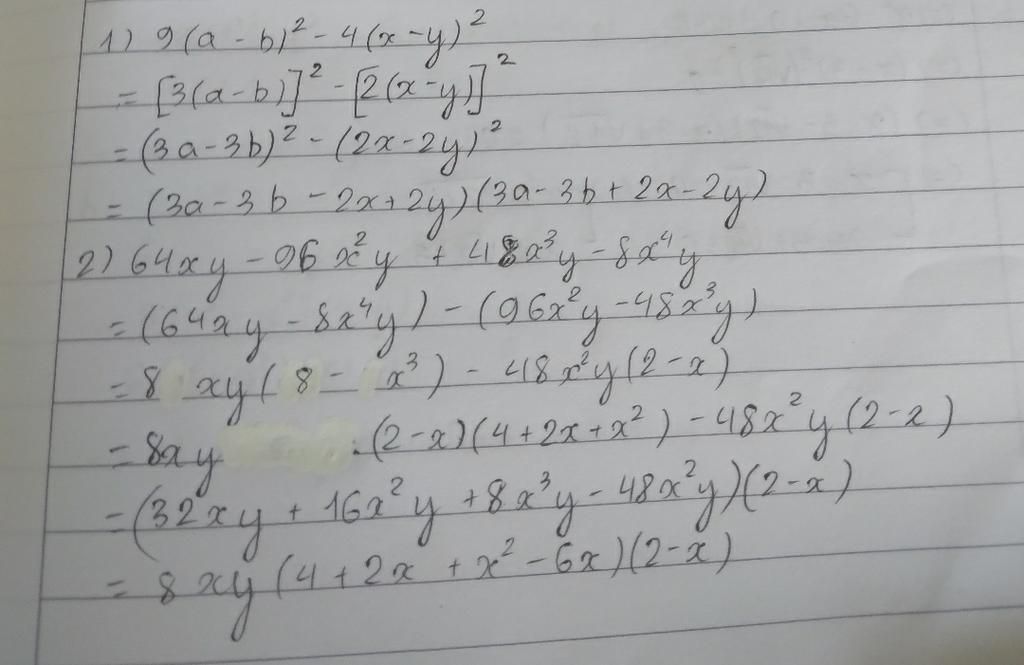 1) 9(a - b)² - 4(x - y)²
= [3(a - b)]² - [2(x - y)]²
= (3a - 3b)² - (2x - 2y)²
= (3a - 3b - 2x + 2y)(3a - 3b + 2x - 2y)
2) 64xy - 96x²y + 48x³y - 8x⁴y
= (64xy - 8x⁴y) - (96x²y - 48x³y)
= 8xy(8 - x³) - 48x²y(2 - x)
= 8xy.(2 - x)(4 + 2x + x²) - 48x²y(2 - x)
= (32xy + 16x²y + 8x³y - 48x²y)(2 - x)
= 8xy(4 + 2x + x² - 6x)(2 - x)